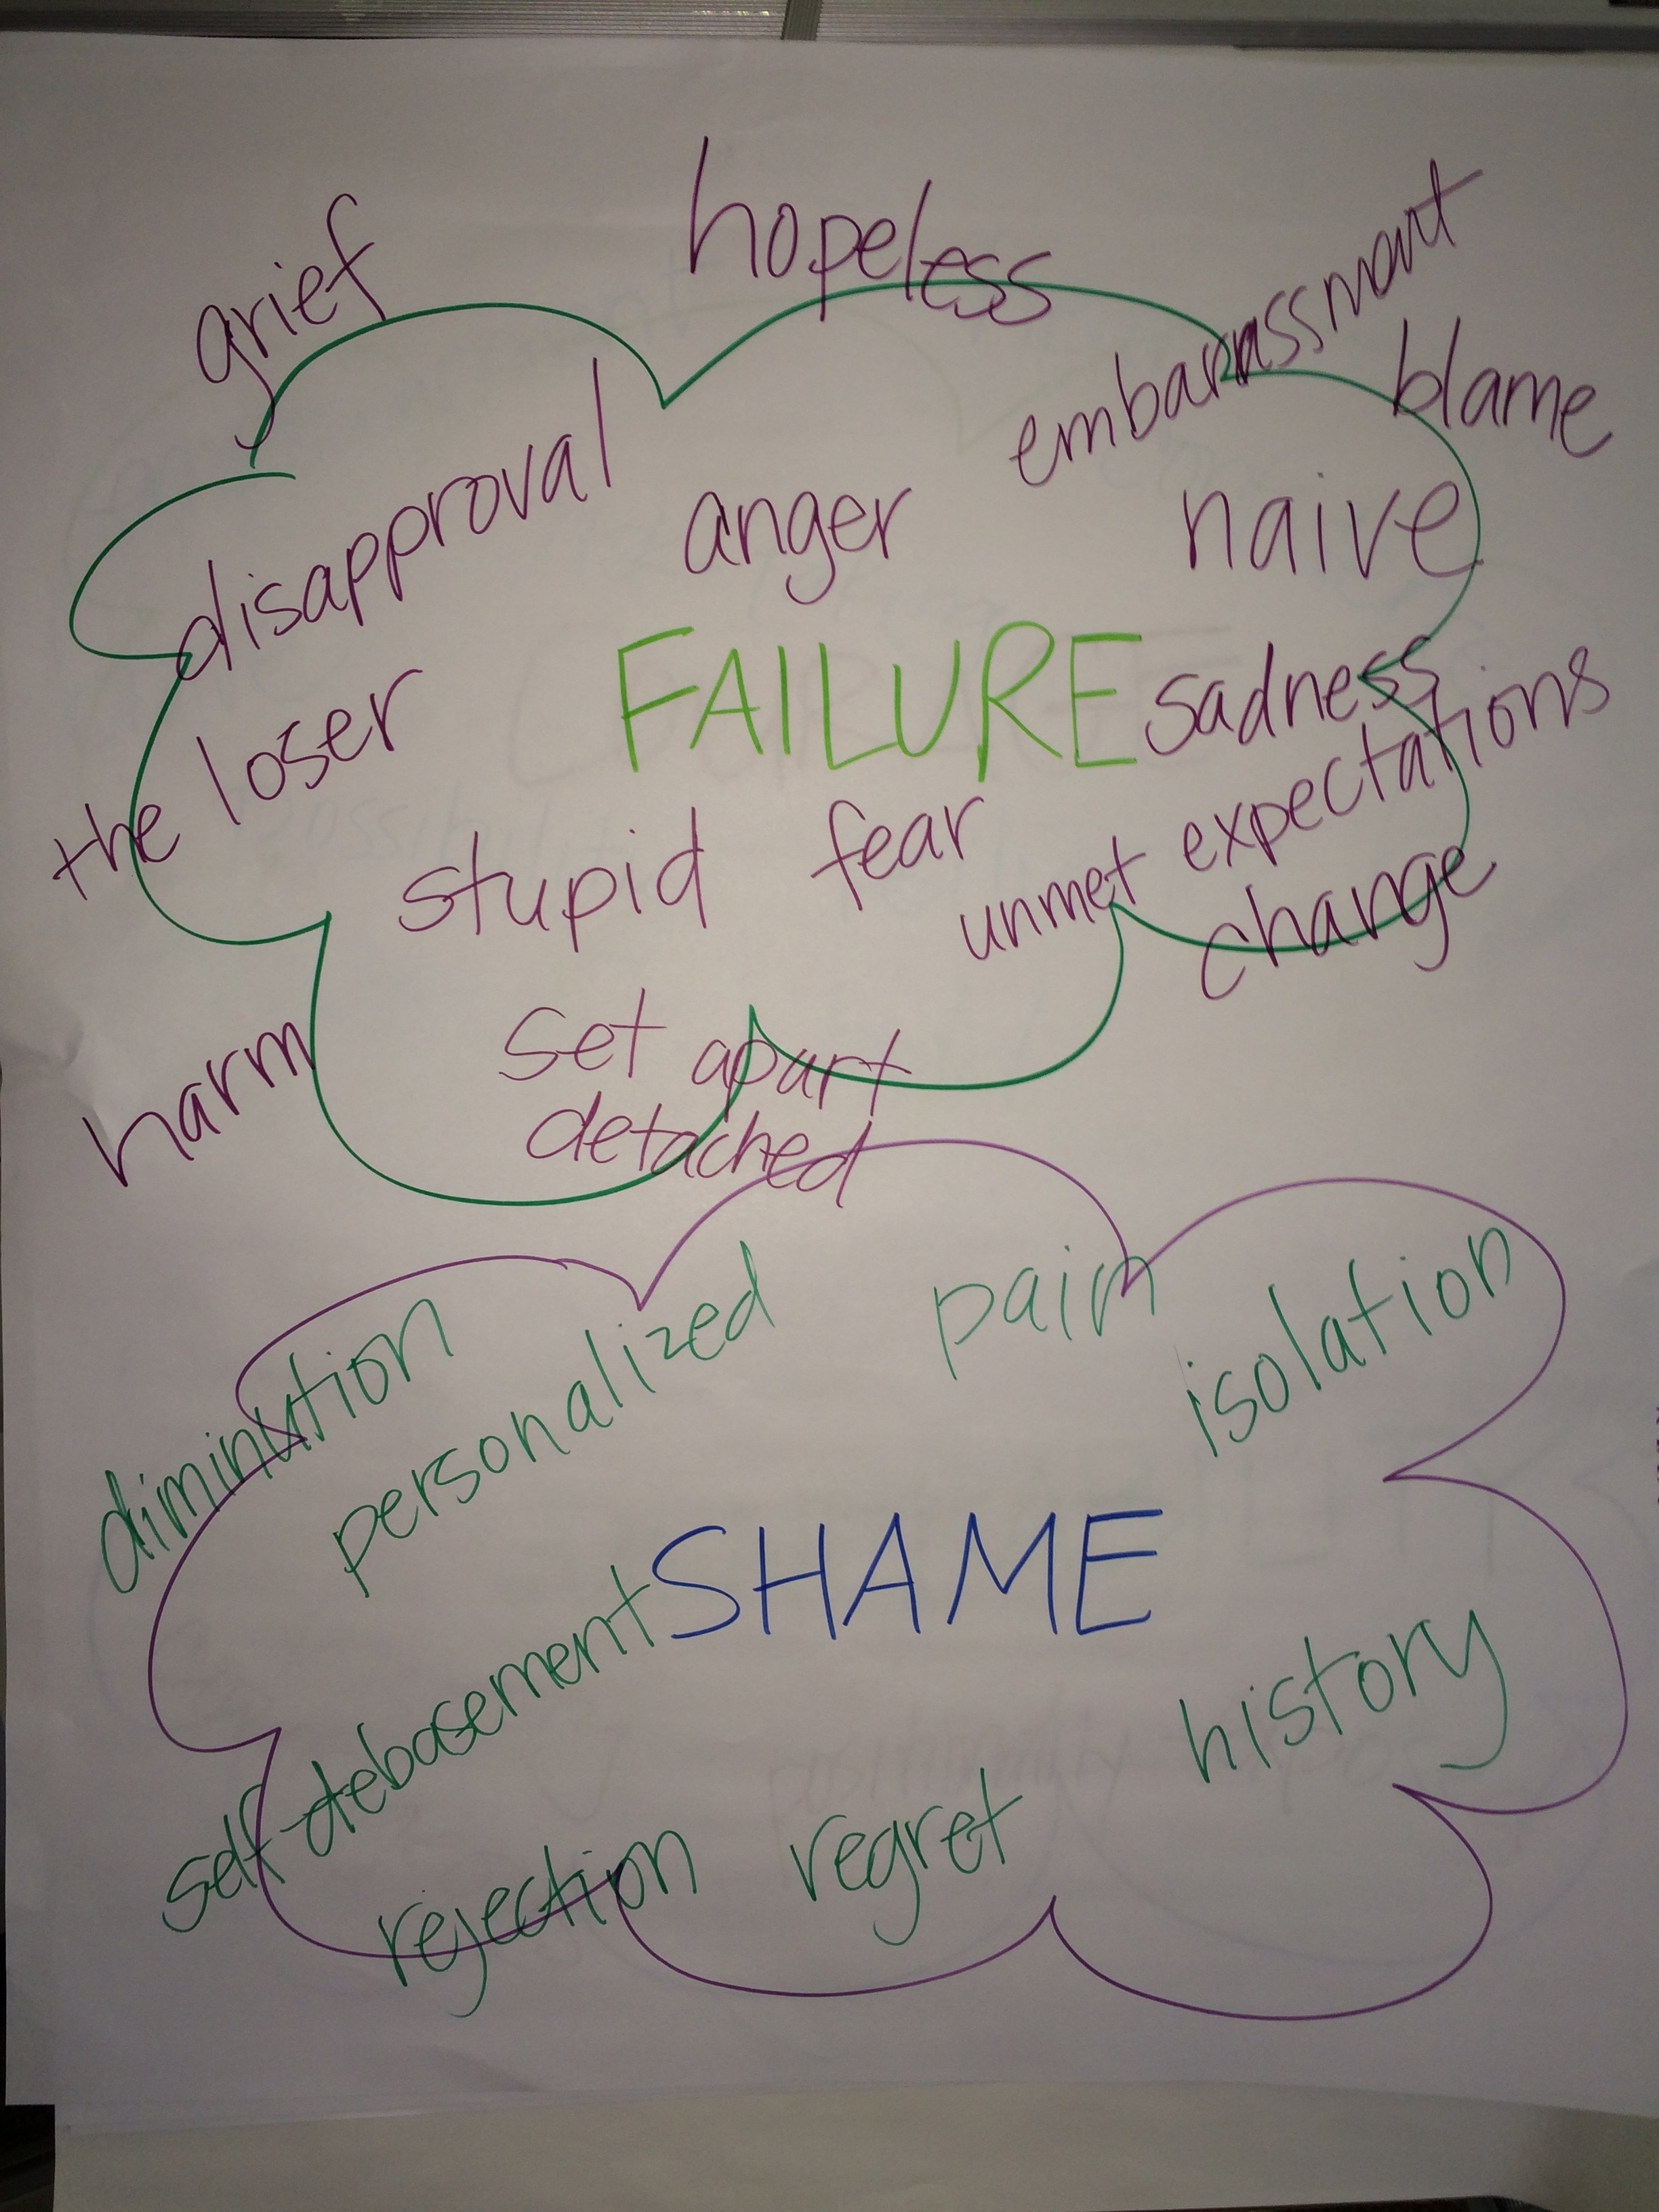 hopeless
grief
embarrassmant
blame
disapproval
anger
naive
FAILURE
sadness
the loser
stupid
fear
unmet expectations
change
set apart
detached
harm
diminution
personalized
pain
isolation
SHAME
self-debasement
history
rejection
regret